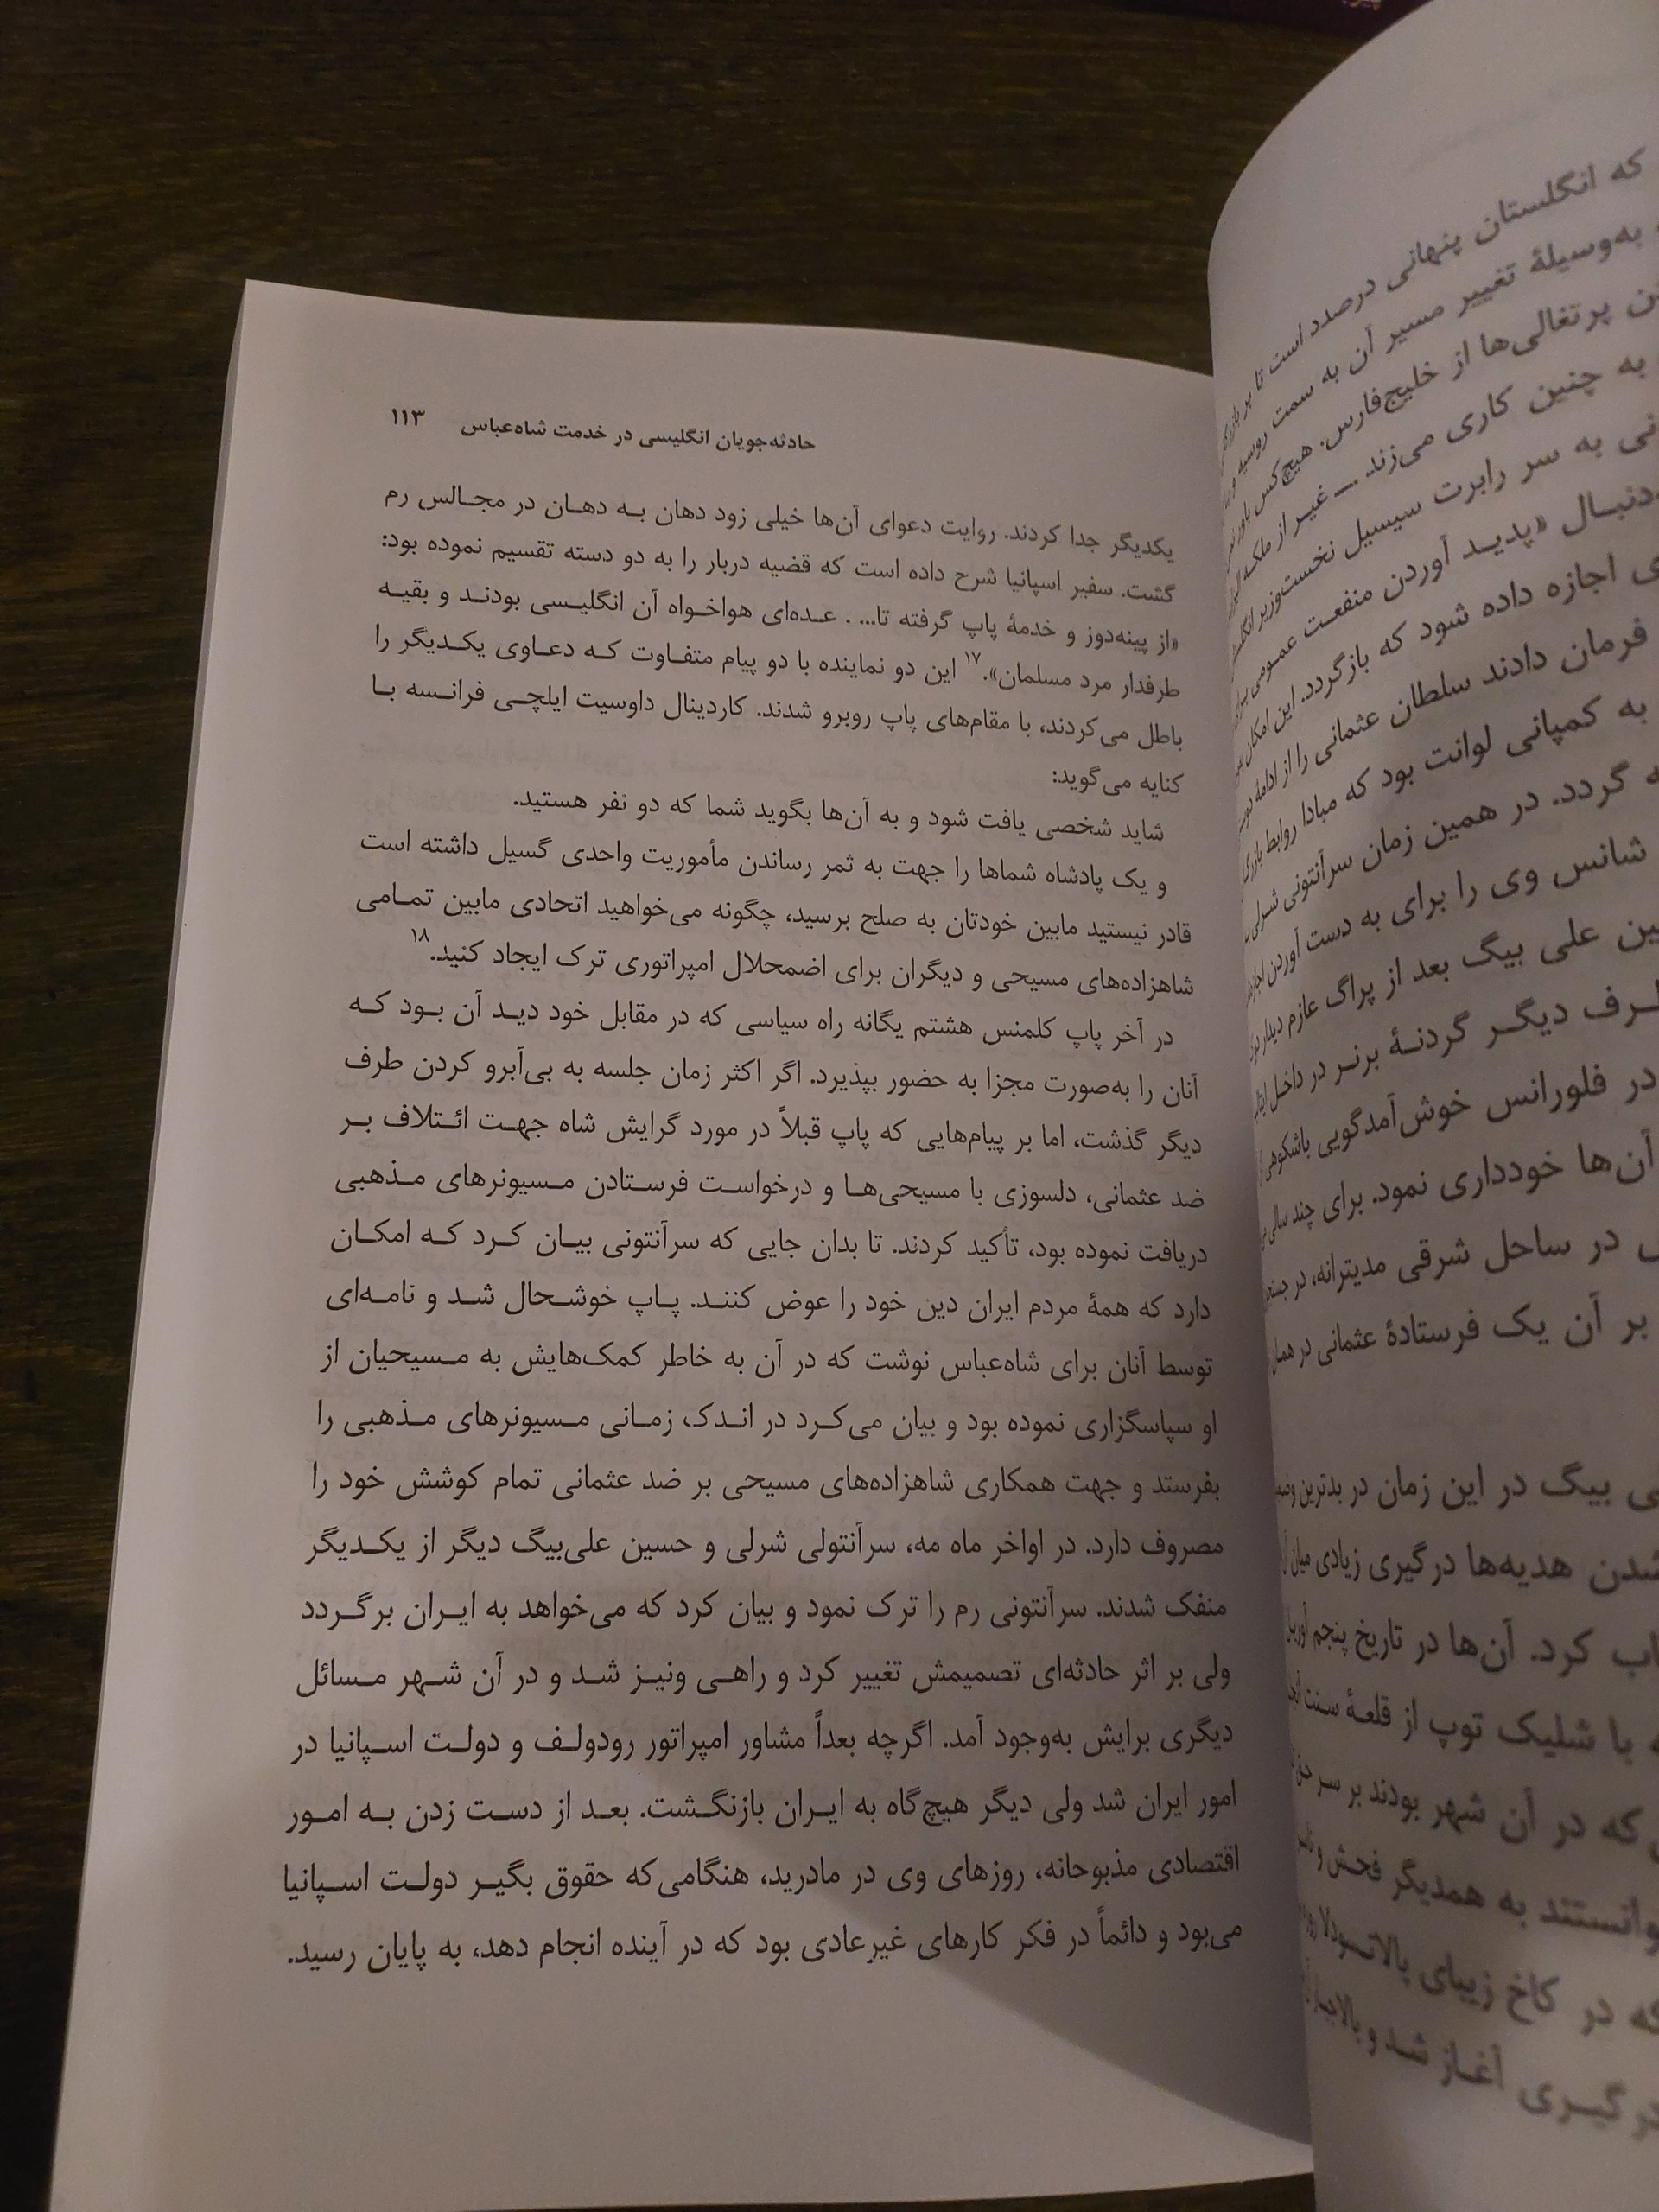 حادثه‌جویان انگلیسی در خدمت شاه‌عباس ۱۱۳
یکدیگر جدا کردند. روایت دعوای آن‌ها خیلی زود دهان به دهان در مجالس رم
گشت. سفیر اسپانیا شرح داده است که قضیه دربار را به دو دسته تقسیم نموده بود:
«از پینه‌دوز و خدمۀ پاپ گرفته تا... . عده‌ای هواخواه آن انگلیسی بودند و بقیه
طرفدار مرد مسلمان».۱۷ این دو نماینده با دو پیام متفاوت که دعاوی یکدیگر را
باطل می‌کردند، با مقام‌های پاپ روبرو شدند. کاردینال داوسیت ایلچی فرانسه با
کنایه می‌گوید:
شاید شخصی یافت شود و به آن‌ها بگوید شما که دو نفر هستید.
و یک پادشاه شماها را جهت به ثمر رساندن مأموریت واحدی گسیل داشته است
قادر نیستید مابین خودتان به صلح برسید، چگونه می‌خواهید اتحادی مابین تمامی
شاهزاده‌های مسیحی و دیگران برای اضمحلال امپراتوری ترک ایجاد کنید.۱۸
در آخر پاپ کلمنس هشتم یگانه راه سیاسی که در مقابل خود دید آن بود که
آنان را به‌صورت مجزا به حضور بپذیرد. اگر اکثر زمان جلسه به بی‌آبرو کردن طرف
دیگر گذشت، اما بر پیام‌هایی که پاپ قبلاً در مورد گرایش شاه جهت ائتلاف بر
ضد عثمانی، دلسوزی با مسیحی‌ها و درخواست فرستادن مسیونرهای مذهبی
دریافت نموده بود، تأکید کردند. تا بدان جایی که سرآنتونی بیان کرد که امکان
دارد که همۀ مردم ایران دین خود را عوض کنند. پاپ خوشحال شد و نامه‌ای
توسط آنان برای شاه‌عباس نوشت که در آن به خاطر کمک‌هایش به مسیحیان از
او سپاسگزاری نموده بود و بیان می‌کرد در اندک زمانی مسیونرهای مذهبی را
بفرستد و جهت همکاری شاهزاده‌های مسیحی بر ضد عثمانی تمام کوشش خود را
مصروف دارد. در اواخر ماه مه، سرآنتولی شرلی و حسین علی‌بیگ دیگر از یکدیگر
منفک شدند. سرآنتونی رم را ترک نمود و بیان کرد که می‌خواهد به ایران برگردد
ولی بر اثر حادثه‌ای تصمیمش تغییر کرد و راهی ونیز شد و در آن شهر مسائل
دیگری برایش به‌وجود آمد. اگرچه بعداً مشاور امپراتور رودولف و دولت اسپانیا در
امور ایران شد ولی دیگر هیچ‌گاه به ایران بازنگشت. بعد از دست زدن به امور
اقتصادی مذبوحانه، روزهای وی در مادرید، هنگامی‌که حقوق بگیر دولت اسپانیا
می‌بود و دائماً در فکر کارهای غیرعادی بود که در آینده انجام دهد، به پایان رسید.
که انگلستان پنهانی درصدد است تا بر
به‌وسیلۀ تغییر مسیر آن به سمت روسیه و
پرتغالی‌ها از خلیج‌فارس. هیچ‌کس
به چنین کاری می‌زند ــ غیر از ملکه
به سر رابرت سیسیل نخست‌وزیر
«پدید آوردن منفعت عمومی
اجازه داده شود که بازگردد. این امکان
فرمان دادند سلطان عثمانی را از ادامۀ
به کمپانی لوانت بود که مبادا روابط
گردد. در همین زمان سرآنتونی شرلی
شانس وی را برای به دست آوردن
علی بیگ بعد از پراگ عازم دیدار
دیگر گردنۀ برنر در داخل
در فلورانس خوش‌آمدگویی باشکوهی
آن‌ها خودداری نمود. برای چند سالی
در ساحل شرقی مدیترانه، در
بر آن یک فرستادۀ عثمانی در همان
بیگ در این زمان در بدترین
شدن هدیه‌ها درگیری زیادی میان
کرد. آن‌ها در تاریخ پنجم آوریل
با شلیک توپ از قلعۀ سنت
که در آن شهر بودند بر سر
به همدیگر فحش و
که در کاخ زیبای
آغاز شد و